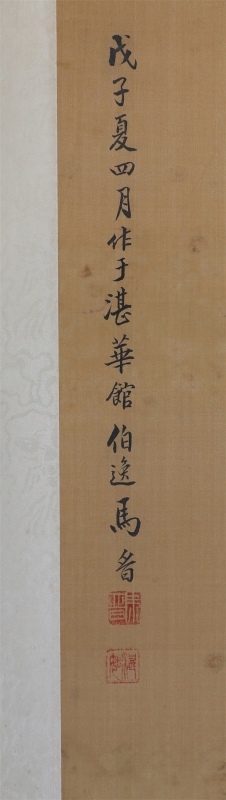 戊子夏四月作于湛華館伯逸馬晉